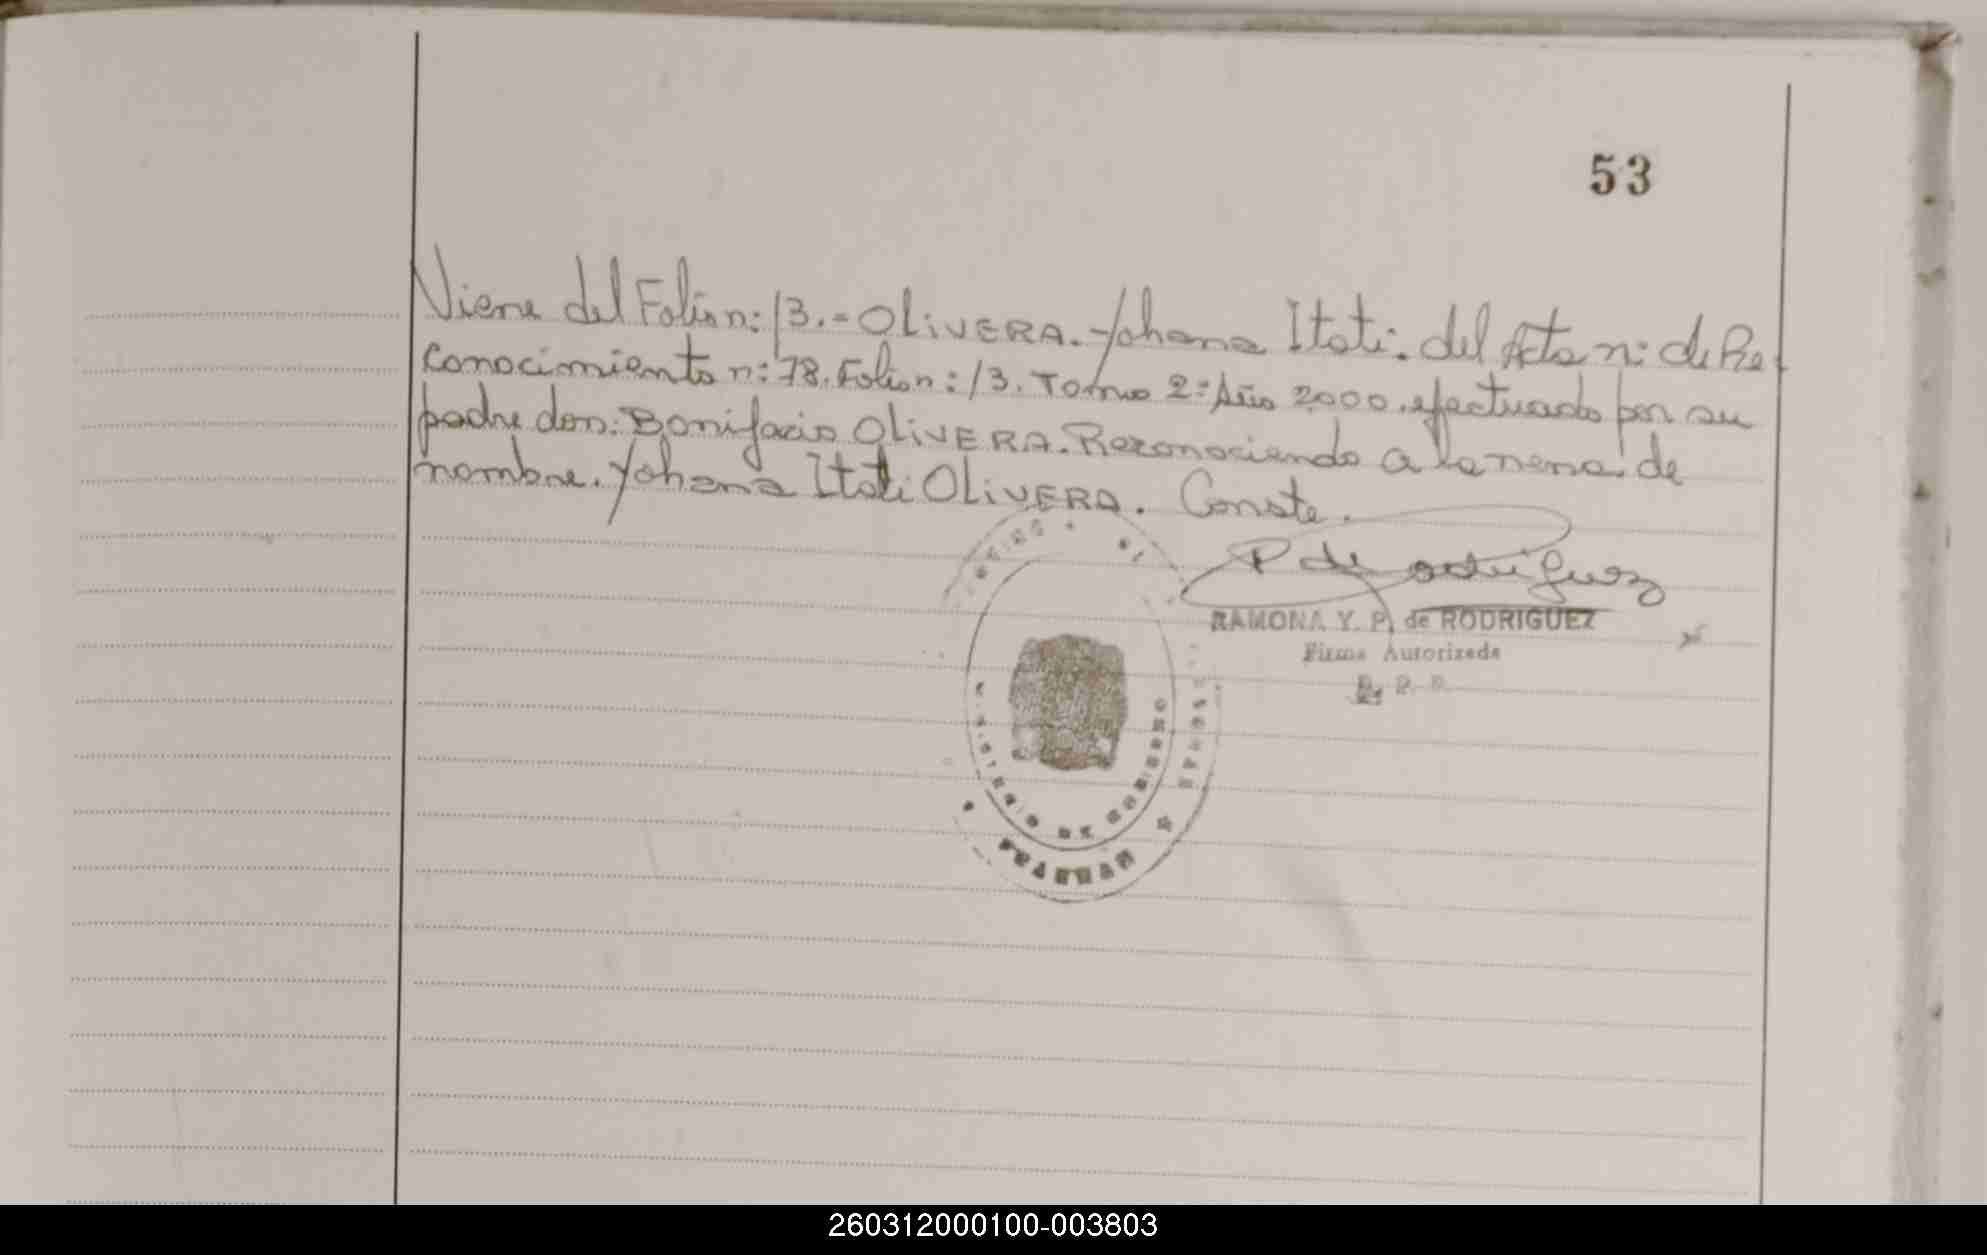 53
Viene del Folio n: 13.- OLIVERA. Yohana Itati. del Acta n: de Re-
conocimiento n: 78. Folio n: 13. Tomo 2: Año 2000. efectuado por su
padre don: Bonifacio OLIVERA. Reconociendo a la nena. de
nombre. Yohana Itati OLIVERA. Conste.
P de Rodriguez
RAMONA Y. P. de RODRIGUEZ
Firma Autorizada
MINISTERIO DE GOBIERNO
260312000100-003803